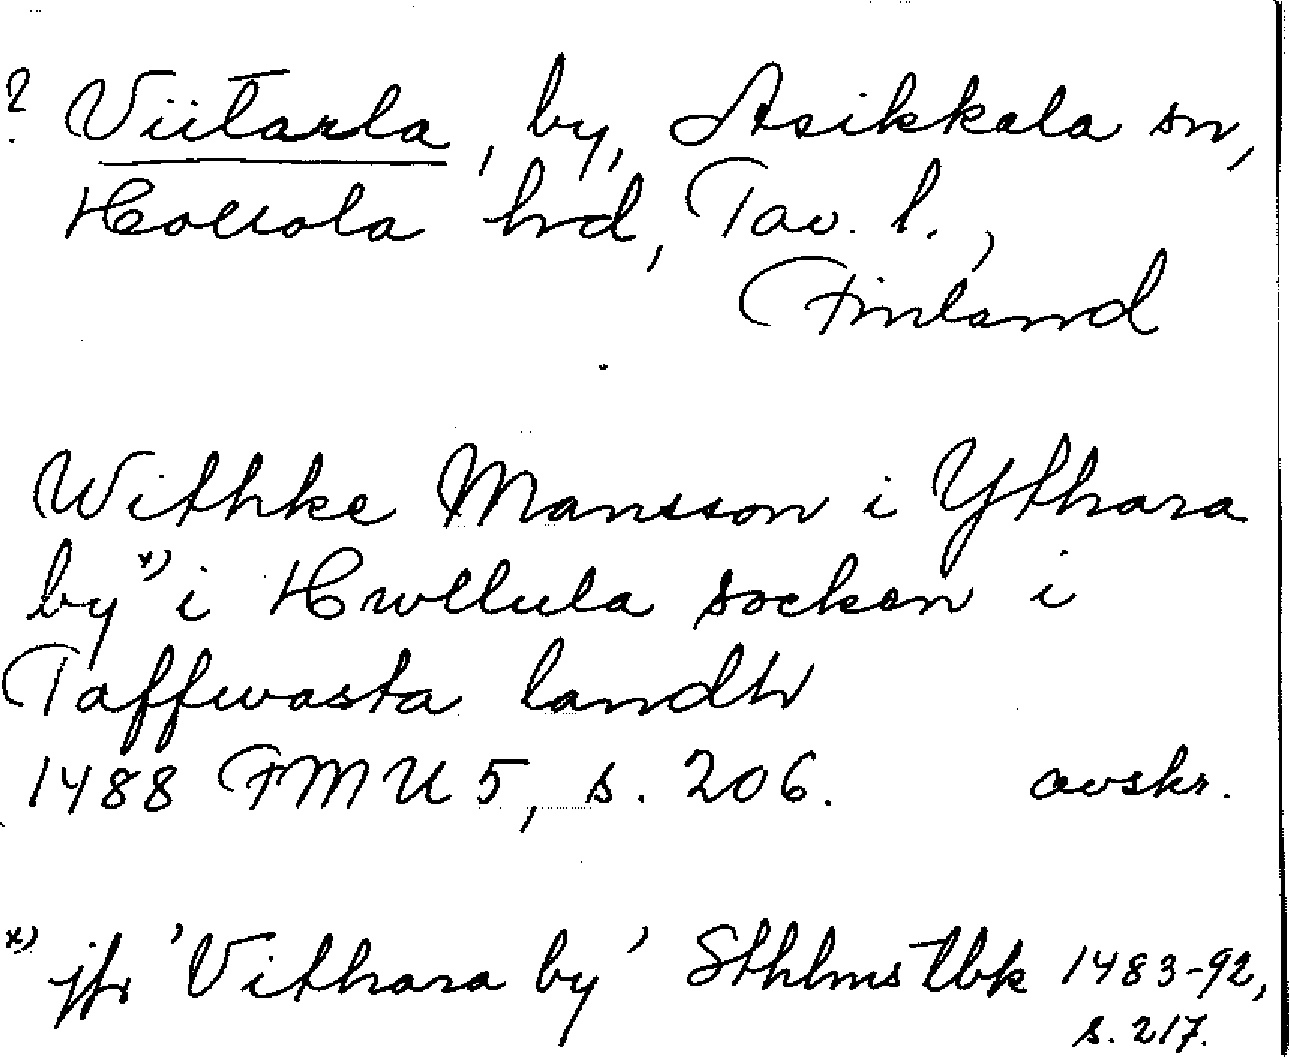 ? Viitaala, by, Asikkala sn,
Hollola hrd, Tav. l.,
Finland
Withke Mansson i Ythara
by *) i Hwllula socken i
Taffwasta landh
1488 FMU 5, s. 206. avskr.
*) jfr 'Vithara by' Sthlms tbk 1483-92,
s. 217.